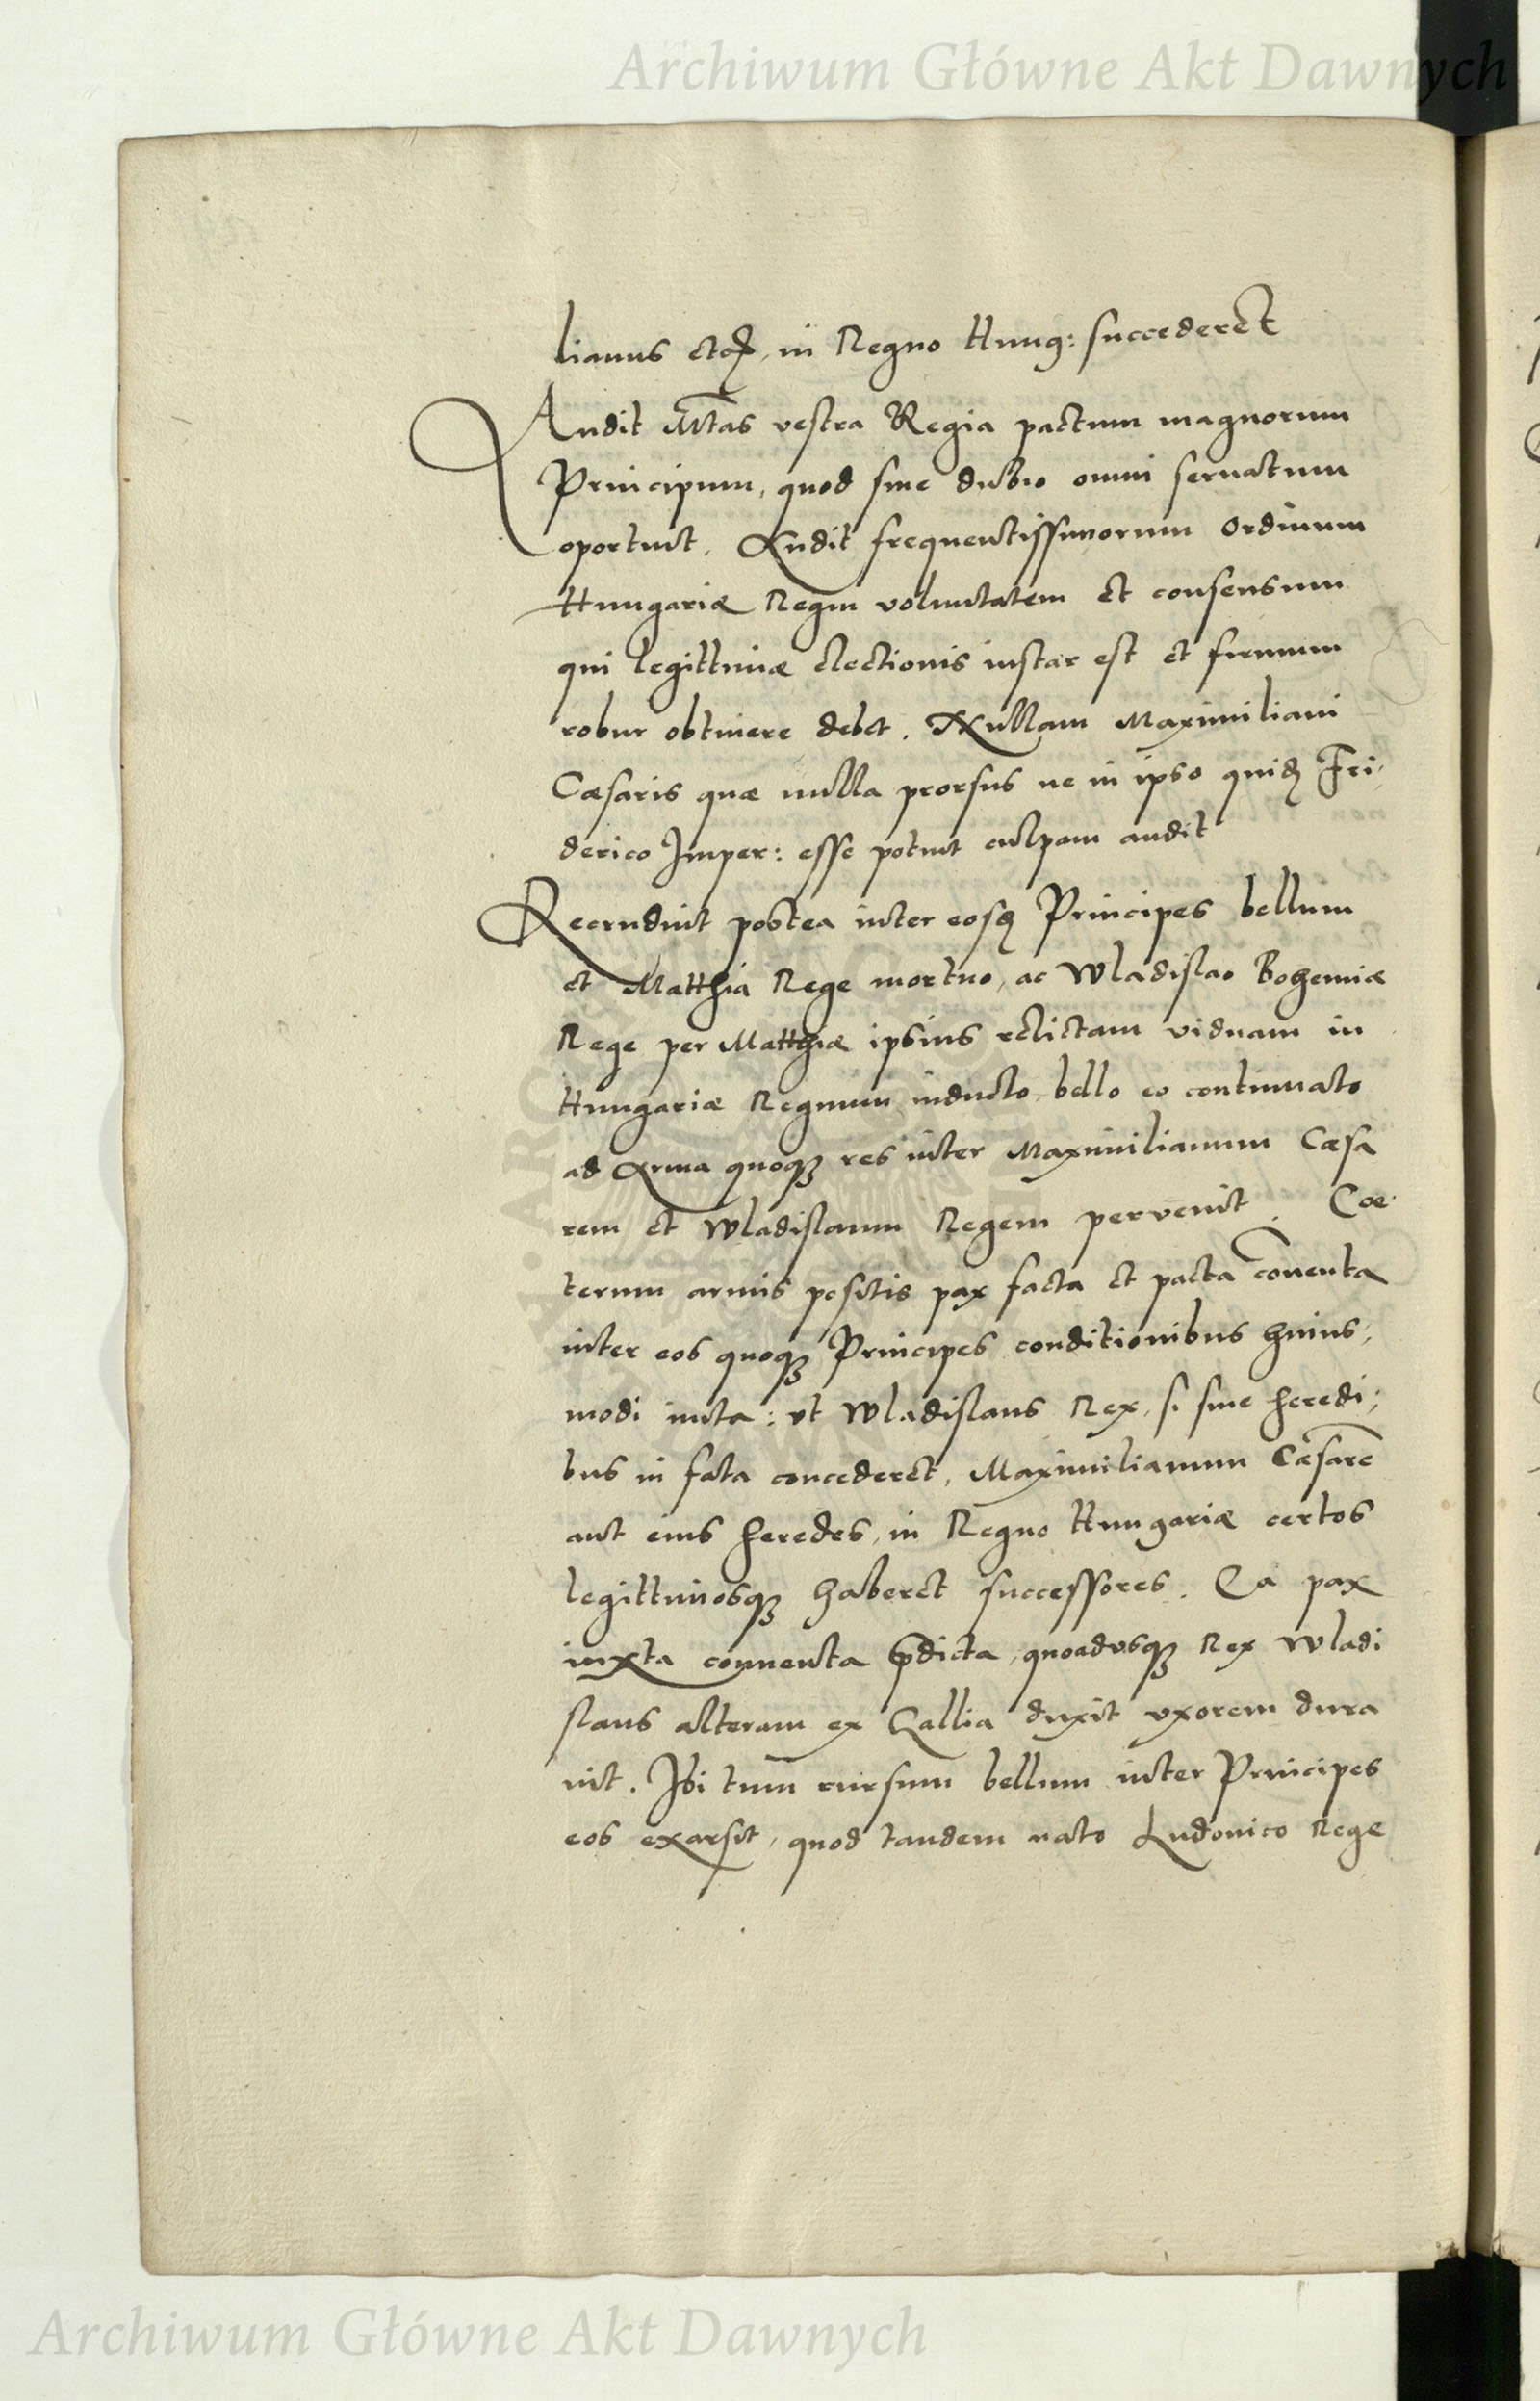 Archiwum Główne Akt Dawnych
lianus etc, in Regno Hung: succederet
Audit Mtas vestra Regia pactum magnorum
Principum, quod sine dubio omni seruatum
oportuit. Audit frequentissimorum ordinum
Hungariæ Regni voluntatem et consensum
qui legittimæ electionis instar est et firmum
robur obtinere debet. Nullam Maximiliani
Cæsaris quæ nulla prorsus ne in ipso quidẽ Fri,
derico Imper: esse potuit culpam audit
Recruduit postea inter eosdẽ Principes bellum
et Matthia Rege mortuo, ac Wladislao Bohemiæ
Rege per Matthiæ ipsius relictam viduam in
Hungariæ Regnum inducto, bello eo continuato
ad Arma quoqꝫ res inter Maximilianum Cæsa
rem et Wladislaum Regem pervenit. Cæ
terum armis positis pax facta et pacta conuenta
inter eos quoqꝫ Principes conditionibus huius,
modi inita: vt Wladislaus Rex, si sine heredi,
bus in fata concederet, Maximilianum Cæsarẽ
aut eius heredes, in Regno Hungariæ certos
legittimosqꝫ haberet successores. Ea pax
iuxta conuenta p̃dicta, quoadvsqꝫ Rex Wladi
slaus alteram ex Gallia duxit vxorem dura
uit. Ibi tum rursum bellum inter Principes
eos exarsit, quod tandem nato Ludouico Rege
Archiwum Główne Akt Dawnych